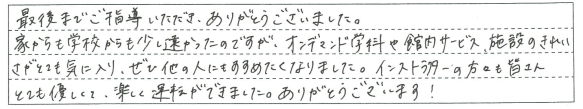 最後までご指導いただき、ありがとうございました。
家からも学校からも少し遠かったのですが、オンデマンド学科や館内サービス、施設のきれい
さがとても気に入り、ぜひ他の人にもすすめたくなりました。インストラクターの方々も皆さん
とても優しくて、楽しく運転ができました。ありがとうございます!